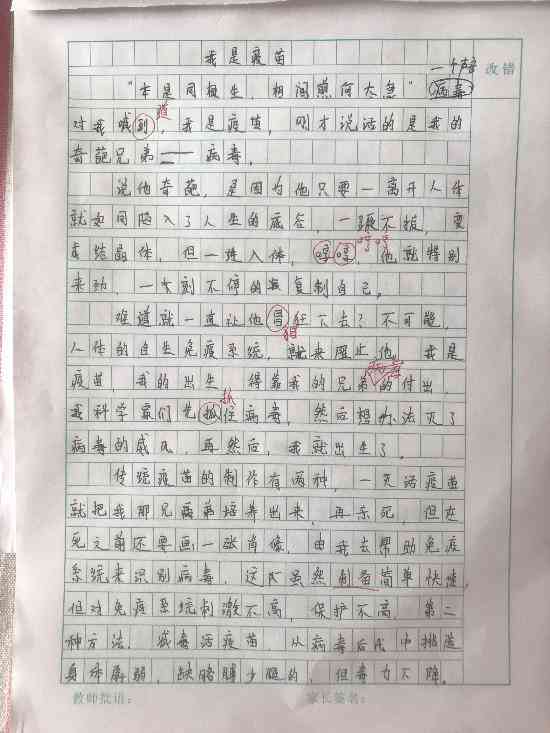 我是疫苗
一个声音
改错
"本是同根生，相间煎何太急"病毒
道
对我喊到，我是疫苗，刚才说话的是我的
奇葩兄弟——病毒。
说他奇葩，是因为他只要一离开人体
就如同陷入了人生的底谷，一蹶不振，变
成结晶体，但一进入体，哼哼，他就特别
来劲，一刻不停的复制自己。
难道就一直让他冒狂下去？不可能，
猖
人体的自生免疫系统，就来阻止他，我是
疫苗，我的出生，得靠我的兄弟的付出，
抓
我科学家们先抓住病毒，然后想办法灭了
病毒的威风，再然后，我就出生了。
传统疫苗的制作有两种，一灭活疫苗
就把我那兄弟培养出来，再杀死，但在
死之前还要画一张肖像，由我去帮助免疫
系统来识别病毒，这虽然制备简单快速，
但对免疫系统刺激不高，保护不高，第二
种方法，减毒活疫苗，从病毒后代中挑选
身体孱弱，缺胳膊少腿的，但毒力不降。
教师批语：
家长签名：